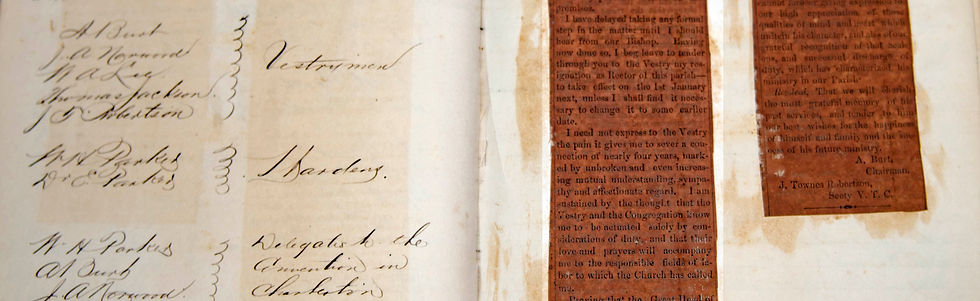 A Burt
J. A. Norwood
W A Lee
Thomas Jackson
J. T. Robertson
Vestrymen
W H Parker
Dr E Parker
Wardens.
W. H Parker
A Burt
J. A Norwood
Delegates to the
Convention in
Charleston
premises.
I have delayed taking any formal
step in the matter until I should
hear from our Bishop. Having
now done so, I beg leave to tender
through you to the Vestry my res-
ignation as Rector of this parish—
to take effect on the 1st January
next, unless I shall find it neces-
sary to change it to some earlier
date.
I need not express to the Vestry
the pain it gives me to sever a con-
nection of nearly four years, mark-
ed by unbroken and even increas-
ing mutual understanding, sympa-
thy and affectionate regard. I am
sustained by the thought that the
Vestry and the Congregation know
me to be actuated solely by con-
siderations of duty, and that their
love and prayers will accompany
me to the responsible fields of la-
bor to which the Church has called
me.
Praying that the Great Head of
cannot forbear giving expression to
our high appreciation of those
qualities of mind and heart which
his character, and also of our
grateful recognition of that
and successful discharge of
duty, which has characterized his
ministry in our Parish.
Resolved, That we will cherish
the most grateful memory of his
past services, and tender to him
our best wishes for the happiness
of himself and family and the suc-
cess of his future ministry.
A. Burt,
Chairman.
J. Townes Robertson,
Secty V. T. C.